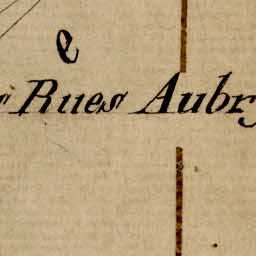 e
Rues Aubry